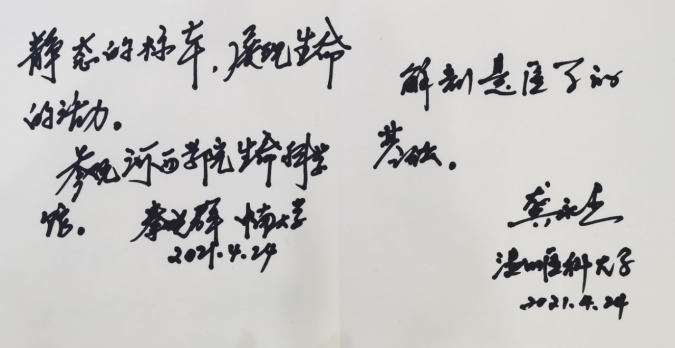 静态的标本，展现生命
的活力。
参观河西学院生命科学
馆。 秦晓群 中南大学
2021.4.24
解剖是医学的
基础。
龚永生
温州医科大学
2021.4.24